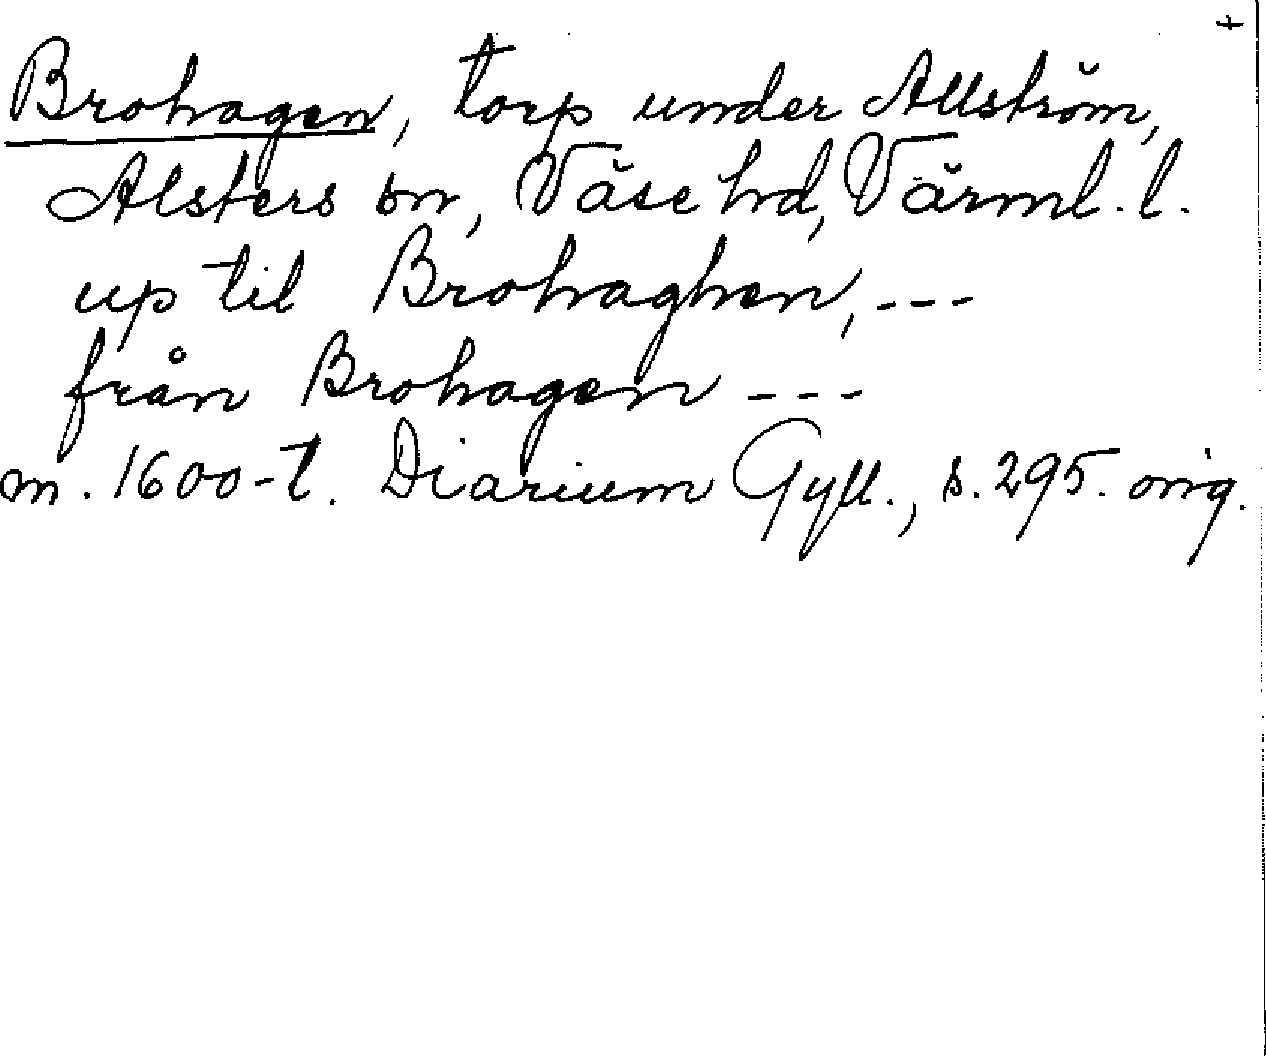 +
Brohagen, torp under Allström,
Alsters sn, Väse hd, Värml. l.
up til Brohaghen, ---
från Brohagen ---
m. 1600-t. Diarium Gyll., s. 295. orig.